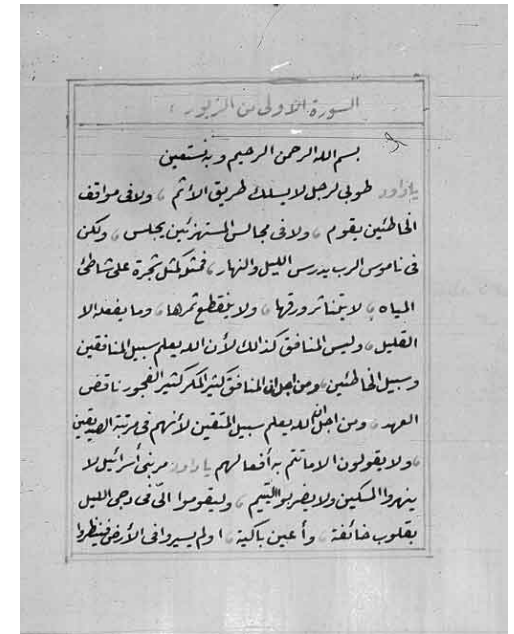 السورة الاولى من الزبور
بسم الله الرحمن الرحيم وبه نستعين
ياداود طوبى لرجل لا يسلك طريق الأثم ولا فى مواقف
الخاطئين يقوم ولا فى مجالس المستهزئين يجلس ولكن
فى ناموس الرب يدرس الليل والنهار فمثله كمثل شجرة على شاطئ
المياه لا يتناثر ورقها ولا ينقطع ثمرها وما يفعله الا
القليل وليس المنافق كذالك لأن الله يعلم سبيل المنافقين
وسبيل الخاطئين ومن اجل ان المنافق كثير المكر كثير الفجور ناقض
العهد ومن اجل ان الله يعلم سبيل المتقين لأنهم فى مرتبة الصديقين
ولا يقولون الا ما تتم به أفعالهم ياداود مر بنى أسرائيل لا
ينهروا المسكين ولا يضربوا اليتيم وليقوموا الىّ فى دجى الليل
بقلوب خائفة وأعين باكية اولم يسيروا فى الأرض فينظروا